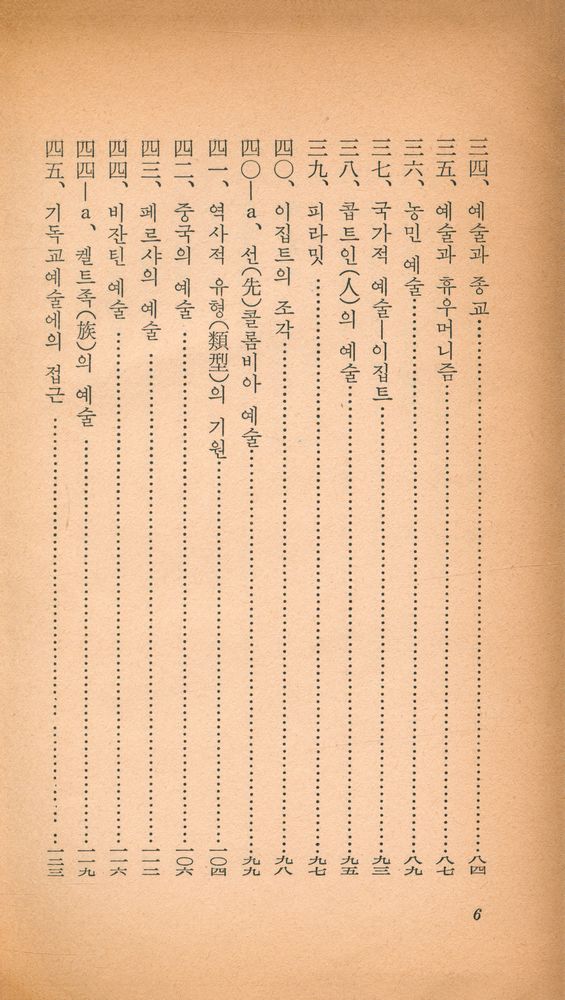 三四、예술과 종교……八四
三五、예술과 휴우머니즘……八七
三六、농민 예술……八九
三七、국가적 예술—이집트……九三
三八、콥트인(人)의 예술……九五
三九、피라밋……九七
四〇、이집트의 조각……九八
四〇—a、선(先)콜롬비아 예술……九九
四一、역사적 유형(類型)의 기원……一〇四
四二、중국의 예술……一〇六
四三、페르샤의 예술……一一二
四四、비잔틴 예술……一一六
四四—a、켈트족(族)의 예술……一一九
四五、기독교예술에의 접근……一二三
6